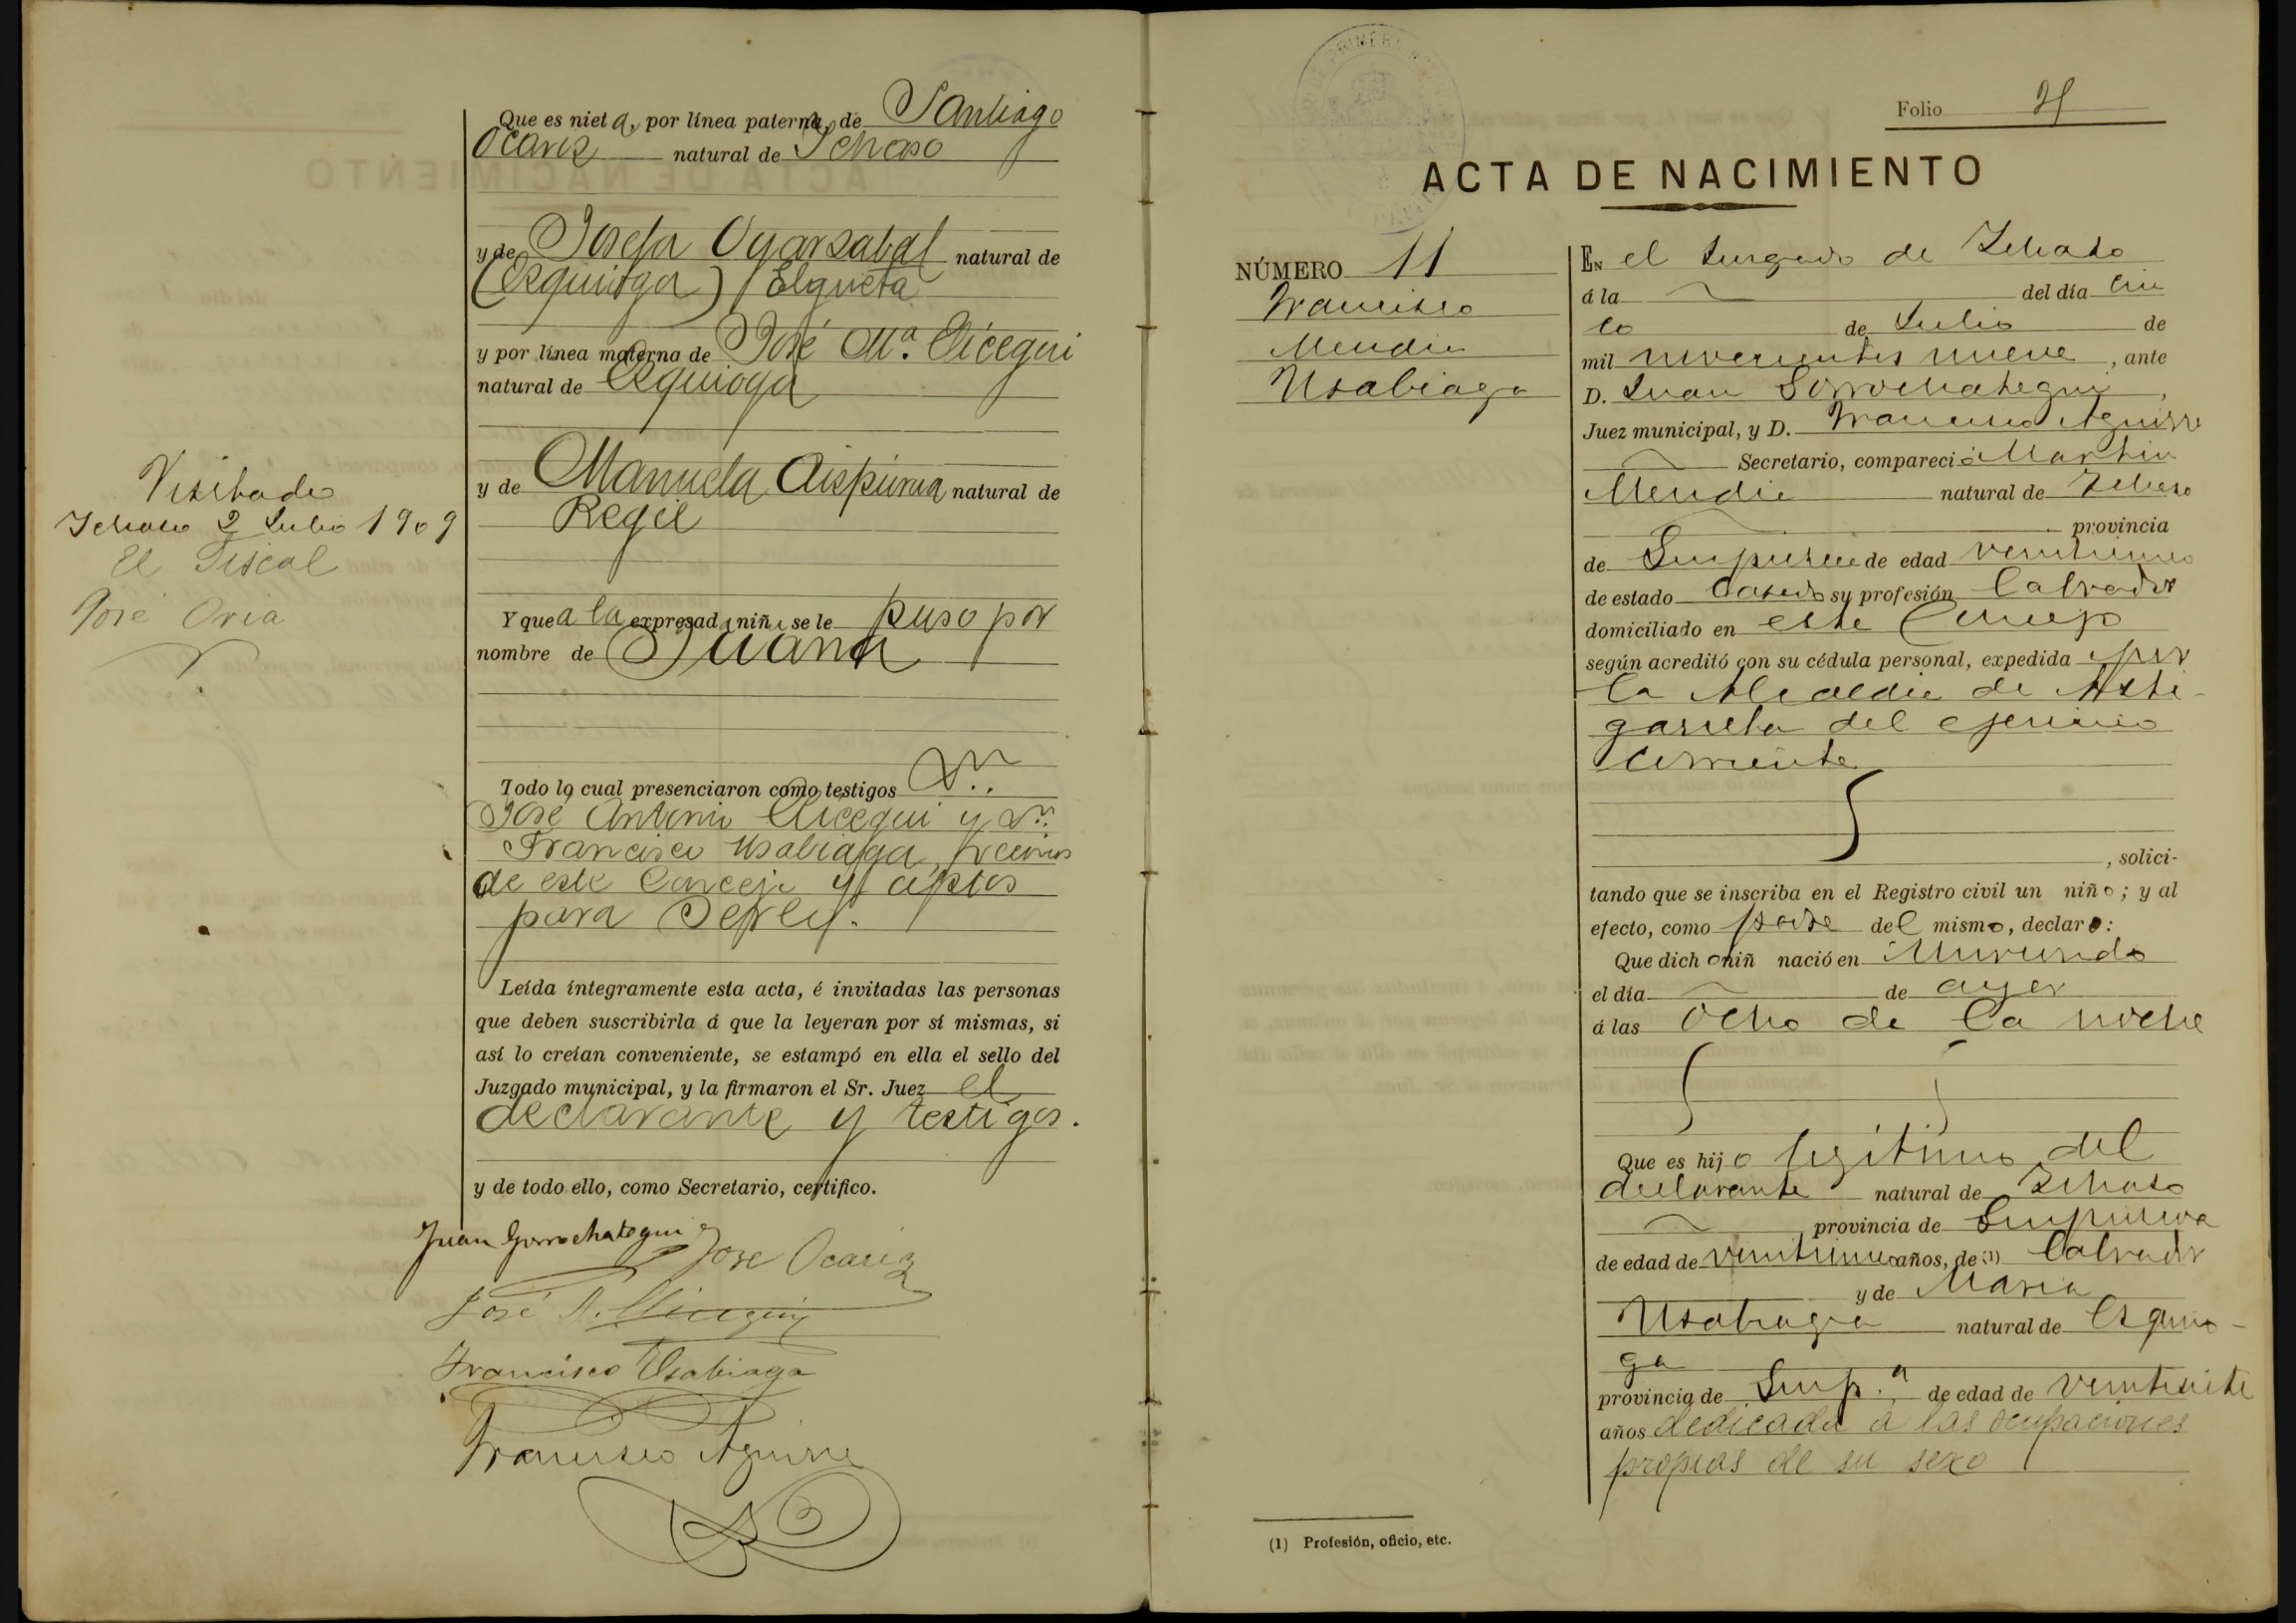 Que es nieta, por línea paterna, de Santiago
Ocariz natural de Ichaso
y de Josefa Oyarzabal natural de
(Ezquioga) Elgueta
y por línea materna de José Mª. Aicegui
natural de Ezquioga
y de Manuela Aispurua natural de
Regil
Visitado
Ichaso 2 Julio 1909
El Fiscal
José Oria
Y que a la expresada niña se le puso por
nombre de Juana
Todo lo cual presenciaron como testigos Dn.
José Antonio Aicegui y Dn.
Francisco Usabiaga, vecinos
de este Concejo y aptos
para serlo.
Leída íntegramente esta acta, é invitadas las personas
que deben suscribirla á que la leyeran por sí mismas, si
así lo creían conveniente, se estampó en ella el sello del
Juzgado municipal, y la firmaron el Sr. Juez el
declarante y testigos.
y de todo ello, como Secretario, certifico.
Juan Gorrochategui
Jose Ocariz
José A. Aicegui
Francisco Usabiaga
Francisco Aguirre
Folio
ACTA DE NACIMIENTO
NÚMERO 11
Francisco
Mendia
Usabiaga
EN el Juzgado de Ichaso
á la del día cin
co de Julio de
mil novecientos nueve, ante
D. Juan Gorrochategui,
Juez municipal, y D. Francisco Aguirre
Secretario, compareció Martin
Mendia natural de Ichaso
provincia
de Guipuzcoa de edad veintinueve
de estado Casado su profesión Labrador
domiciliado en este Concejo
según acreditó con su cédula personal, expedida por
la Alcaldia de Asti-
garreta del ejercicio
corriente
, solici-
tando que se inscriba en el Registro civil un niño; y al
efecto, como padre del mismo, declaro:
Que dicho niñ nació en
el día de ayer
á las ocho de la noche
Que es hijo legitimo del
declarante natural de Ichaso
provincia de Guipuzcoa
de edad de veintinueve años, de (1) Labrador
y de Maria
Usabiaga natural de Ezquio-
ga
provincia de Guip.ª de edad de veintisiete
años dedicada a las ocupaciones
propias de su sexo
(1) Profesión, oficio, etc.